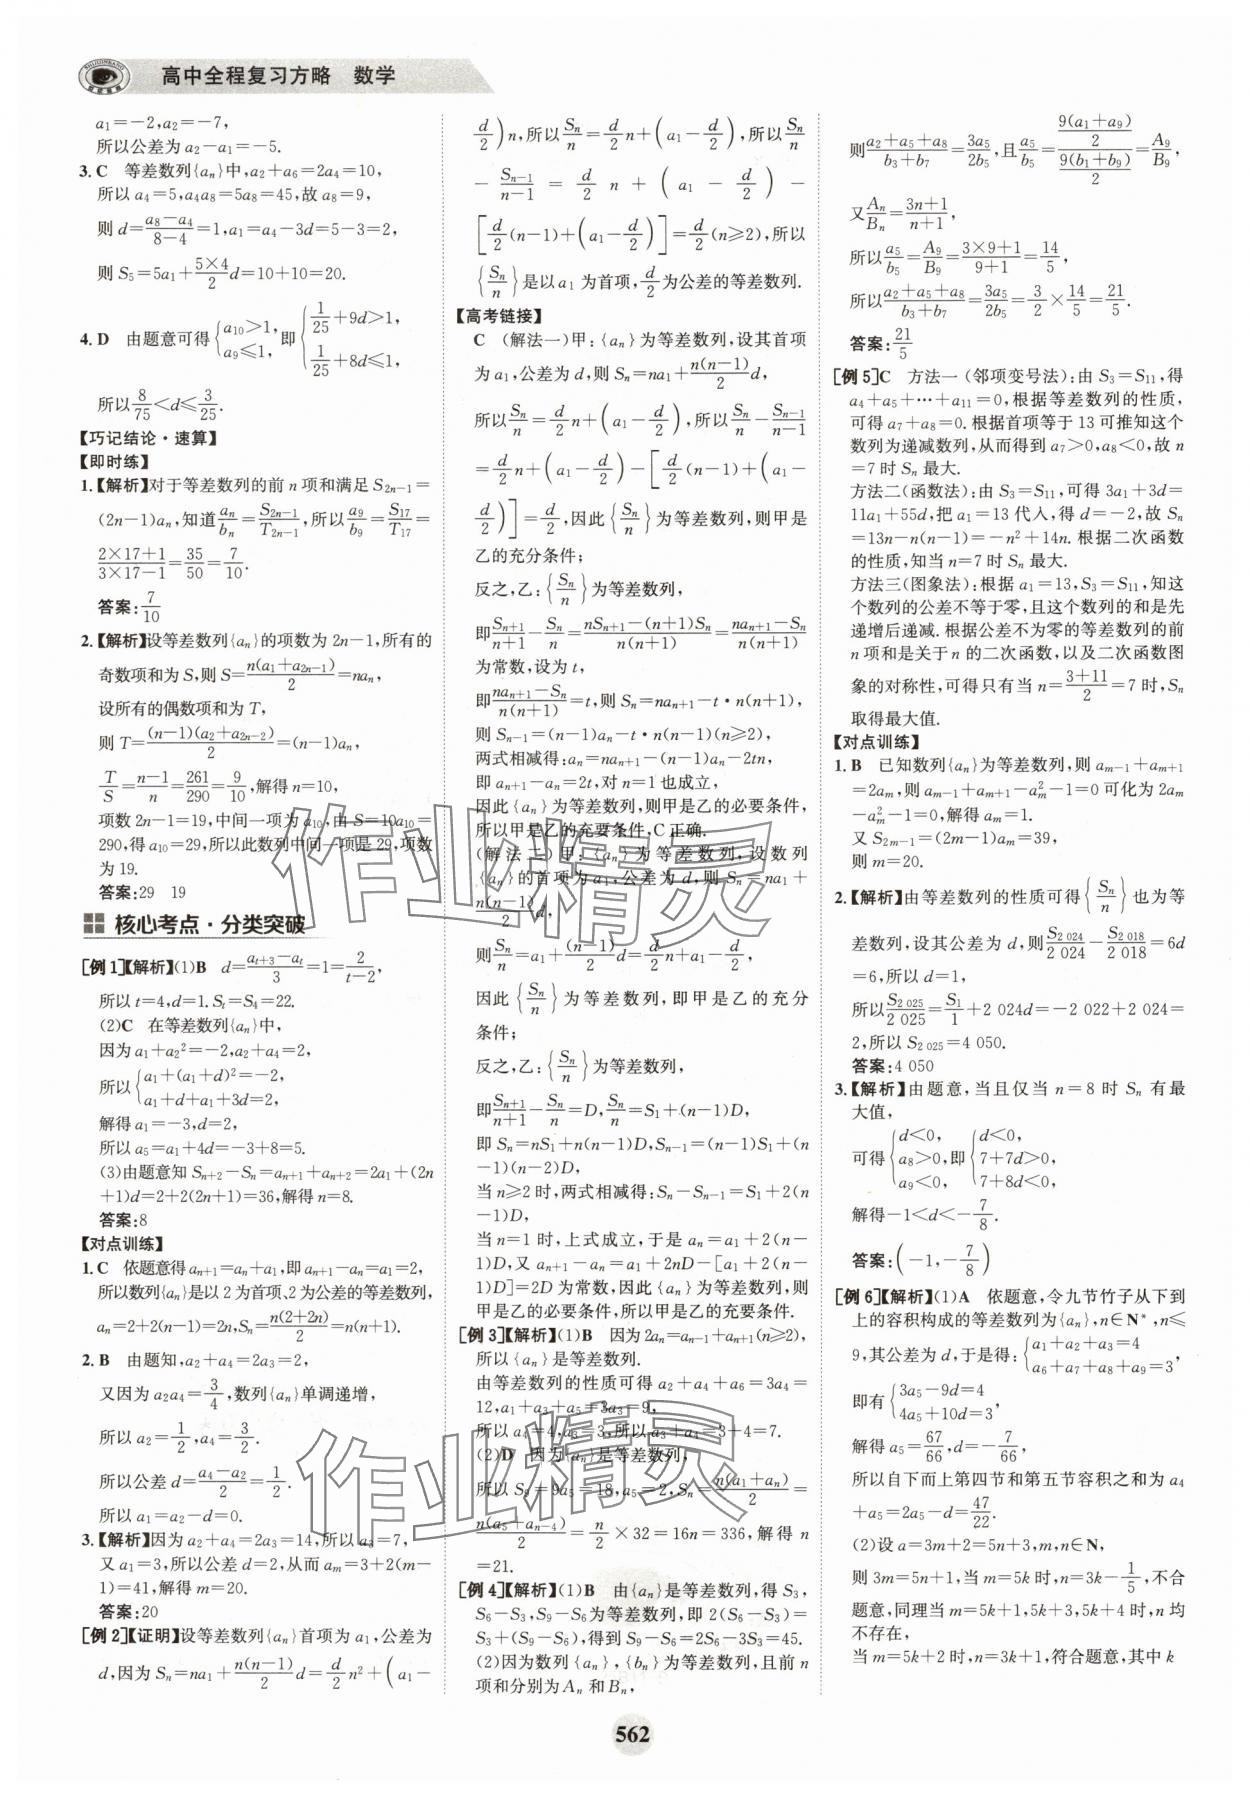 高中全程复习方略 数学
a₁=-2,a₂=-7,
所以公差为 a₂-a₁=-5.
3. C 等差数列{aₙ}中,a₂+a₆=2a₄=10,
所以 a₄=5,a₄a₈=5a₈=45,故 a₈=9,
则 d=(a₈-a₄)/(8-4)=1,a₁=a₄-3d=5-3=2,
则 S₅=5a₁+(5×4)/2 d=10+10=20.
4. D 由题意可得{a₁₀>1, a₉≤1, 即{1/25+9d>1, 1/25+8d≤1,
所以 8/75<d≤3/25.
【巧记结论·速算】
【即时练】
1.【解析】对于等差数列的前 n 项和满足 S₂ₙ₋₁=
(2n-1)aₙ,知道 aₙ/bₙ=S₂ₙ₋₁/T₂ₙ₋₁,所以 a₉/b₉=S₁₇/T₁₇
(2×17+1)/(3×17-1)=35/50=7/10.
答案:7/10
2.【解析】设等差数列{aₙ}的项数为 2n-1,所有的
奇数项和为 S,则 S=n(a₁+a₂ₙ₋₁)/2=naₙ,
设所有的偶数项和为 T,
则 T=(n-1)(a₂+a₂ₙ₋₂)/2=(n-1)aₙ,
T/S=(n-1)/n=261/290=9/10,解得 n=10,
项数 2n-1=19,中间一项为 a₁₀,由 S=10a₁₀=
290,得 a₁₀=29,所以此数列中间一项是 29,项数
为 19.
答案:29 19
核心考点·分类突破
[例 1]【解析】(1)B d=(aₜ₊₃-aₜ)/3=1=2/(t-2),
所以 t=4,d=1.Sₜ=S₄=22.
(2)C 在等差数列{aₙ}中,
因为 a₁+a₂²=-2,a₂+a₄=2,
所以{a₁+(a₁+d)²=-2, a₁+d+a₁+3d=2,
解得 a₁=-3,d=2,
所以 a₅=a₁+4d=-3+8=5.
(3)由题意知 Sₙ₊₂-Sₙ=aₙ₊₁+aₙ₊₂=2a₁+(2n
+1)d=2+2(2n+1)=36,解得 n=8.
答案:8
【对点训练】
1. C 依题意得 aₙ₊₁=aₙ+a₁,即 aₙ₊₁-aₙ=a₁=2,
所以数列{aₙ}是以 2 为首项、2 为公差的等差数列,
aₙ=2+2(n-1)=2n,Sₙ=n(2+2n)/2=n(n+1).
2. B 由题知,a₂+a₄=2a₃=2,
又因为 a₂a₄=3/4,数列{aₙ}单调递增,
所以 a₂=1/2,a₄=3/2.
所以公差 d=(a₄-a₂)/2=1/2.
所以 a₁=a₂-d=0.
3.【解析】因为 a₂+a₄=2a₃=14,所以 a₃=7,
又 a₁=3,所以公差 d=2,从而 aₘ=3+2(m-
1)=41,解得 m=20.
答案:20
[例 2]【证明】设等差数列{aₙ}首项为 a₁,公差为
d,因为 Sₙ=na₁+n(n-1)/2 d=d/2 n²+(a₁-
d/2)n,所以 Sₙ/n=d/2 n+(a₁-d/2),所以 Sₙ/n
-Sₙ₋₁/(n-1)=d/2 n+(a₁-d/2)-
[d/2(n-1)+(a₁-d/2)]=d/2(n≥2),所以
{Sₙ/n}是以 a₁ 为首项,d/2为公差的等差数列.
【高考链接】
C (解法一)甲:{aₙ}为等差数列,设其首项
为 a₁,公差为 d,则 Sₙ=na₁+n(n-1)/2 d,
所以 Sₙ/n=d/2 n+(a₁-d/2),所以 Sₙ/n-Sₙ₋₁/(n-1)
=d/2 n+(a₁-d/2)-[d/2(n-1)+(a₁-
d/2)]=d/2,因此{Sₙ/n}为等差数列,则甲是
乙的充分条件;
反之,乙:{Sₙ/n}为等差数列,
即 Sₙ₊₁/(n+1)-Sₙ/n=(nSₙ₊₁-(n+1)Sₙ)/(n(n+1))=(naₙ₊₁-Sₙ)/(n(n+1))
为常数,设为 t,
即(naₙ₊₁-Sₙ)/(n(n+1))=t,则 Sₙ=naₙ₊₁-t·n(n+1),
则 Sₙ₋₁=(n-1)aₙ-t·n(n-1)(n≥2),
两式相减得:aₙ=naₙ₊₁-(n-1)aₙ-2tn,
即 aₙ₊₁-aₙ=2t,对 n=1 也成立,
因此{aₙ}为等差数列,则甲是乙的必要条件,
所以甲是乙的充要条件,C 正确.
(解法二)甲:{aₙ}为等差数列,设数列
{aₙ}的首项为 a₁,公差为 d,则 Sₙ=na₁+
n(n-1)/2 d,
则 Sₙ/n=a₁+(n-1)/2 d=d/2 n+a₁-d/2,
因此{Sₙ/n}为等差数列,即甲是乙的充分
条件;
反之,乙:{Sₙ/n}为等差数列,
即 Sₙ₊₁/(n+1)-Sₙ/n=D,Sₙ/n=S₁+(n-1)D,
即 Sₙ=nS₁+n(n-1)D,Sₙ₋₁=(n-1)S₁+(n
-1)(n-2)D,
当 n≥2 时,两式相减得:Sₙ-Sₙ₋₁=S₁+2(n
-1)D,
当 n=1 时,上式成立,于是 aₙ=a₁+2(n-
1)D,又 aₙ₊₁-aₙ=a₁+2nD-[a₁+2(n-
1)D]=2D 为常数,因此{aₙ}为等差数列,则
甲是乙的必要条件,所以甲是乙的充要条件.
[例 3]【解析】(1)B 因为 2aₙ=aₙ₋₁+aₙ₊₁(n≥2),
所以{aₙ}是等差数列.
由等差数列的性质可得 a₂+a₄+a₆=3a₄=
12,a₁+a₃+a₅=3a₃=9,
所以 a₄=4,a₃=3,所以 a₃+a₄=3+4=7.
(2)D 因为{aₙ}是等差数列,
所以 S₉=9a₅=18,a₅=2,Sₙ=n(a₁+aₙ)/2=
n(a₅+aₙ₋₄)/2=n/2×32=16n=336,解得 n
=21.
[例 4]【解析】(1)B 由{aₙ}是等差数列,得 S₃,
S₆-S₃,S₉-S₆为等差数列,即 2(S₆-S₃)=
S₃+(S₉-S₆),得到 S₉-S₆=2S₆-3S₃=45.
(2)因为数列{aₙ},{bₙ}为等差数列,且前 n
项和分别为 Aₙ 和 Bₙ,
则(a₂+a₅+a₈)/(b₃+b₇)=3a₅/2b₅,且 a₅/b₅=(9(a₁+a₉)/2)/(9(b₁+b₉)/2)=A₉/B₉,
又 Aₙ/Bₙ=(3n+1)/(n+1),
所以 a₅/b₅=A₉/B₉=(3×9+1)/(9+1)=14/5,
所以(a₂+a₅+a₈)/(b₃+b₇)=3a₅/2b₅=3/2×14/5=21/5.
答案:21/5
[例 5]C 方法一(邻项变号法):由 S₃=S₁₁,得
a₄+a₅+…+a₁₁=0,根据等差数列的性质,
可得 a₇+a₈=0.根据首项等于 13 可推知这个
数列为递减数列,从而得到 a₇>0,a₈<0,故 n
=7 时 Sₙ 最大.
方法二(函数法):由 S₃=S₁₁,可得 3a₁+3d=
11a₁+55d,把 a₁=13 代入,得 d=-2,故 Sₙ
=13n-n(n-1)=-n²+14n.根据二次函数
的性质,知当 n=7 时 Sₙ 最大.
方法三(图象法):根据 a₁=13,S₃=S₁₁,知这
个数列的公差不等于零,且这个数列的和是先
递增后递减.根据公差不为零的等差数列的前
n 项和是关于 n 的二次函数,以及二次函数图
象的对称性,可得只有当 n=(3+11)/2=7 时,Sₙ
取得最大值.
【对点训练】
1. B 已知数列{aₙ}为等差数列,则 aₘ₋₁+aₘ₊₁
=2aₘ,则 aₘ₋₁+aₘ₊₁-aₘ²-1=0 可化为 2aₘ
-aₘ²-1=0,解得 aₘ=1.
又 S₂ₘ₋₁=(2m-1)aₘ=39,
则 m=20.
2.【解析】由等差数列的性质可得{Sₙ/n}也为等
差数列,设其公差为 d,则 S₂ ₀₂₄/2 024-S₂ ₀₁₈/2 018=6d
=6,所以 d=1,
所以 S₂ ₀₂₅/2 025=S₁/1+2 024d=-2 022+2 024=
2,所以 S₂ ₀₂₅=4 050.
答案:4 050
3.【解析】由题意,当且仅当 n=8 时 Sₙ 有最
大值,
可得{d<0, a₈>0, a₉<0, 即{d<0, 7+7d>0, 7+8d<0,
解得-1<d<-7/8.
答案:(-1,-7/8)
[例 6]【解析】(1)A 依题意,令九节竹子从下到
上的容积构成的等差数列为{aₙ},n∈N*,n≤
9,其公差为 d,于是得:{a₁+a₂+a₃=4 a₆+a₇+a₈+a₉=3,
即有{3a₅-9d=4 4a₅+10d=3,
解得 a₅=67/66,d=-7/66,
所以自下而上第四节和第五节容积之和为 a₄
+a₅=2a₅-d=47/22.
(2)设 a=3m+2=5n+3,m,n∈N,
则 3m=5n+1,当 m=5k 时,n=3k-1/5,不合
题意,同理当 m=5k+1,5k+3,5k+4 时,n 均
不存在,
当 m=5k+2 时,n=3k+1,符合题意,其中 k
562
作业精灵
作业精灵